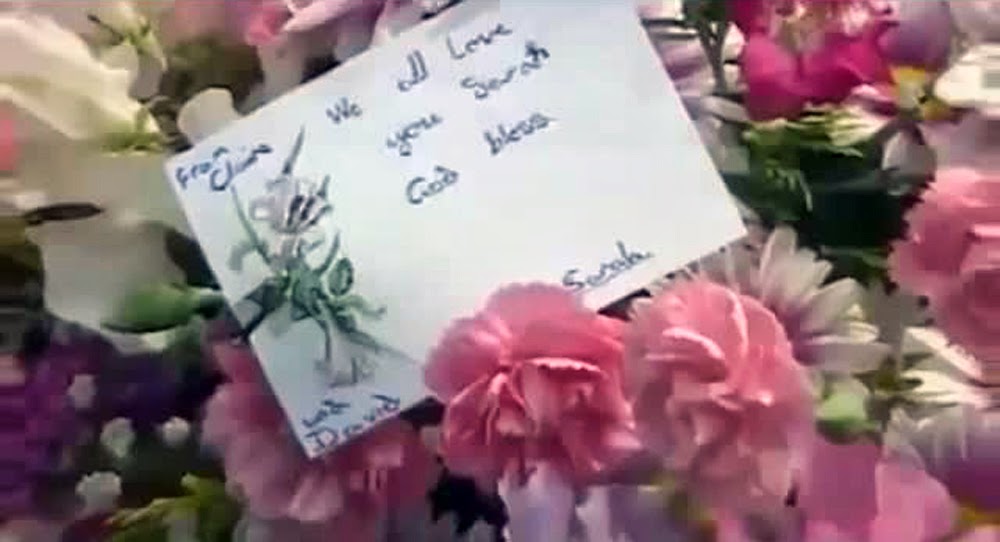 We all Love
you Sarah
God bless
From
Claire
Sarah
and
David